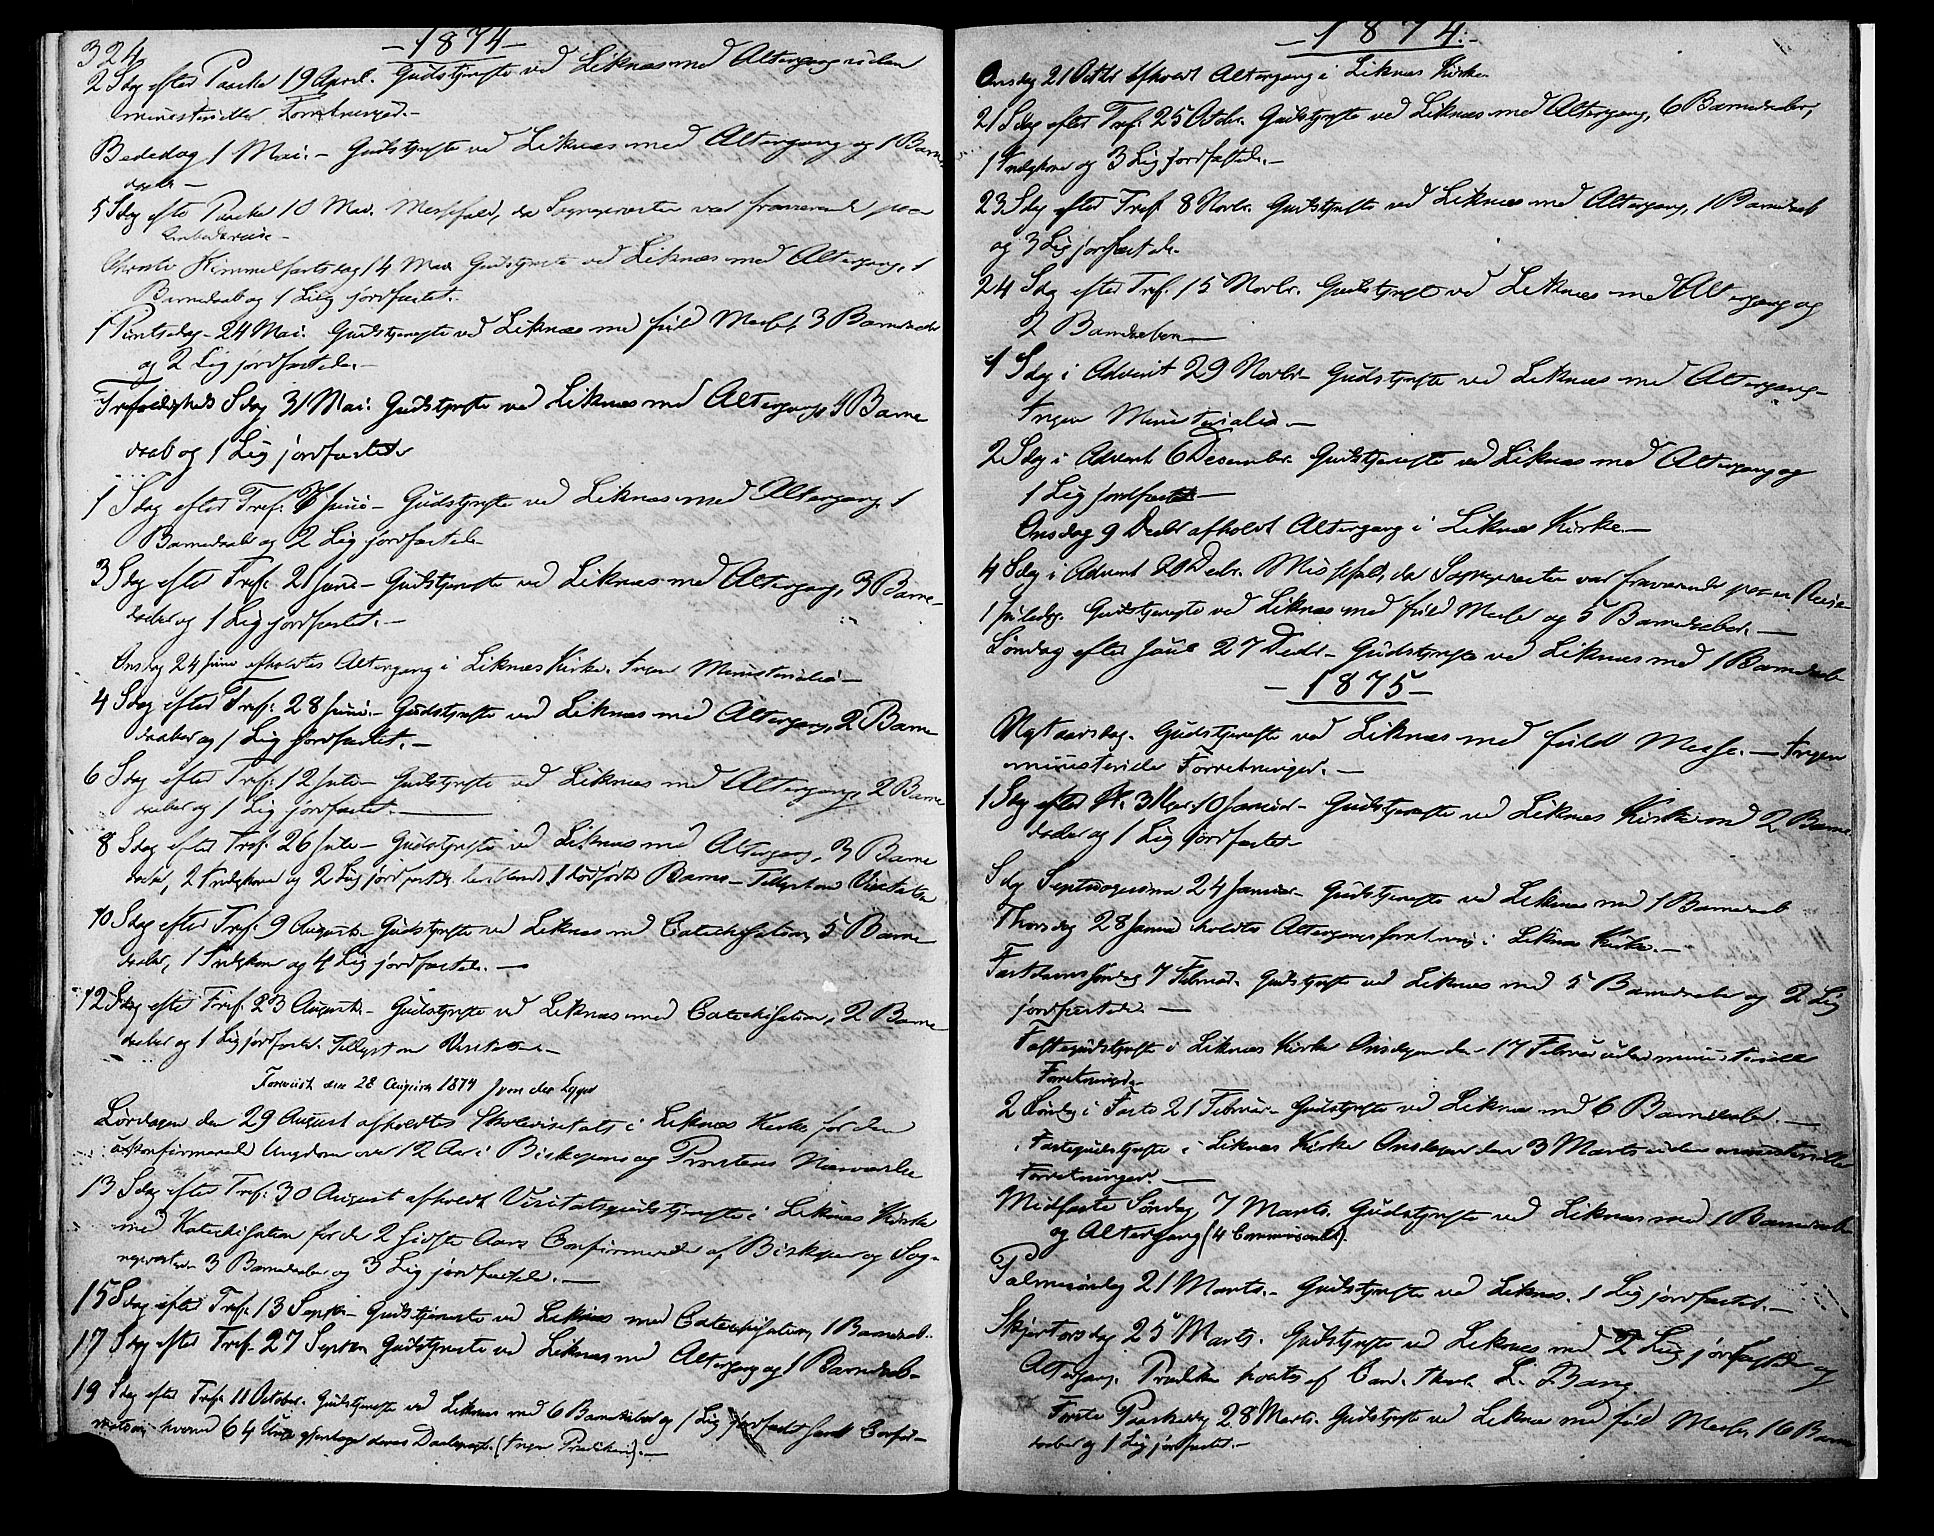 324
- 1874 -
2 Sdag efter Paaske 19 April. Gudstjeneste ved Liknes med Altergang uden
ministerielle Forretninger.-
Bededag 1 Mai.- Gudstjeneste ved Liknes med Altergang og 1 Barne-
daab -
5 Sdag efter Paaske 10 Mai. Messefald, da Sognepræsten var fraværende paa
Embedsreise -
Christi Himmelfartsdag 14 Mai Gudstjeneste ved Liknes med Altergang, 1
Barnedaab og 1 Liig jordfæstet.
1 Pintsedag - 24 Mai. Gudstjeneste ved Liknes med fuld Messe, 3 Barnedaaber
og 2 Lig jordfæstede.-
Trefoldigheds Sdag 31 Mai. Gudstjeneste ved Liknes med Altergang, 4 Barne
daab og 1 Lig jordfæstede
1 Sdag efter Tref. 7 Juni - Gudstjeneste ved Liknes med Altergang, 1
Barnedaab og 2 Lig jordfæstede
3 Sdag efter Tref. 21 Juni - Gudstjeneste ved Liknes med Altergang, 3 Barne-
daaber og 1 Lig jordfæstet.-
Onsdag 24 Juni afholdtes Altergang i Liknes Kirke. Ingen Ministerialia -
4 Sdag efter Tref. 28 Juni.- Gudstjeneste ved Liknes med Altergang, 2 Barne
daaber og 1 Lig jordfæstet.-
6 Sdag efter Tref. 12 Juli - Gudstjeneste ved Liknes med Altergang, 2 Barne
daaber og 1 Lig jordfæstet.-
8 Sdag efter Tref. 26 Juli - Gudstjeneste ved Liknes med Altergang, 3 Barne
daab, 2 Indgkone og 2 Liig jordfæstede, heriblandt 1 dødfødt Barn - Tillyst om Visitats
10 Sdag efter Tref. 9 August - Gudstjeneste ved Liknes med Catechisation, 5 Barne
daaber, 1 Indgkone og 4 Lig jordfæstede.-
12 Sdag efter Tref. 23 August.- Gudstjeneste ved Liknes med Catechisation, 2 Barne
daaber og 1 Lig jordfæstet. Tillyst om Visitatsen.-
den 28 August 1874 J von der Lippe
Lørdagen den 29 August afholdtes Skolevisitats i Liknes Kirke for den
ukonfirmerede Ungdom over 12 Aar i Biskopens og Provstens Nærværelse
13 Sdag efter Tref. 30 August afholdt Visitatsgudstjeneste i Liknes Kirke
med Katechisation for de 2 sidste Aars Confirmerede af Biskopen og Sog-
nepræsten 3 Barnedaaber og 3 Lig jordfæstede.-
15 Sdag efter Tref. 13 Septbr.- Gudstjeneste ved Liknes med Catechisation, 1 Barnedaab.
17 Sdag efter Tref. 27 Septbr Gudstjeneste ved Liknes med Altergang og 1 Barnedaab -
19 Sdag efter Tref. 11 October. Gudstjeneste ved Liknes med 6 Barnedaaber og 1 Lig jordfæstet samt Confir-
mation, hvorved 64 Unge gjentoge deres Daabspagt. (Ingen Prædiken).-
- 1874.-
Onsdag 21 Octbr afholdt Altergang i Liknes Kirke
21 Sdag efter Tref. 25 Octbr. Gudstjeneste ved Liknes med Altergang, 6 Barnedaaber,
1 Indgkone og 3 Lig jordfæstede.-
23 Sdag efter Tref. 8 Novbr. Gudstjeneste ved Liknes med Altergang, 1 Barnedaab
og 3 Lig jordfæstede.
24 Sdag efter Tref. 15 Novbr. Gudstjeneste ved Liknes med Altergang og
2 Barnedaaber -
1 Sdag i Advent 29 Novbr - Gudstjeneste ved Liknes med Altergang -
Ingen Ministerialia.-
2 Sdag i Advent 6 December. Gudstjeneste ved Liknes med Altergang og
1 Lig jordfæstet -
Onsdag 9 Decbr afholdt Altergang i Liknes Kirke.-
4 Sdag i Advent 20 Decbr. Messefald, da Sognepræsten var fraværende paa en Reise
1 Juledag. Gudstjeneste ved Liknes med fuld Messe og 5 Barnedaaber.-
Søndag efter Juul 27 Decbr - Gudstjeneste ved Liknes med 1 Barnedaab
- 1875 -
Nytaarsdag. Gudstjeneste ved Liknes med fuld Messe.- Ingen
ministerielle Forretninger.-
1 Sdag efter H. 3 Kong. 10 Januar - Gudstjeneste ved Liknes Kirke med 2 Barne
daaber og 1 Lig jordfæstet -
Sdag Septuagesima 24 Januar - Gudstjeneste ved Liknes med 1 Barnedaab
Thorsdag 28 Januar holdtes Altergangsforretning i Liknes Kirke.-
Fastelavnssøndag 7 Februar. Gudstjeneste ved Liknes med 5 Barnedaaber og 2 Lig
jordfæstede.-
Fastegudstjeneste i Liknes Kirke Onsdagen den 17 Februar uden ministerielle
Forretninger
2 Søndag i Faste 21 Februar - Gudstjeneste ved Liknes med 6 Barnedaaber.-
Fastegudstjeneste i Liknes Kirke Onsdagen den 3 Marts uden ministerielle
Forretninger.-
Midfaste Søndag 7 Marts. Gudstjeneste ved Liknes med 1 Barnedaab
og Altergang (4 Communicanter).
Palmesøndag 21 Marts.- Gudstjeneste ved Liknes. 1 Lig jordfæstet.-
Skjertorsdag 25 Marts. Gudstjeneste ved Liknes med 2 Liig jordfæstede og
Altergang. Prædiken holdtes af Cand. theol. L. Bang
Første Paaskedag 28 Marts. Gudstjeneste ved Liknes med fuld Messe, 16 Barne
daaber og 1 Lig jordfæstet.-